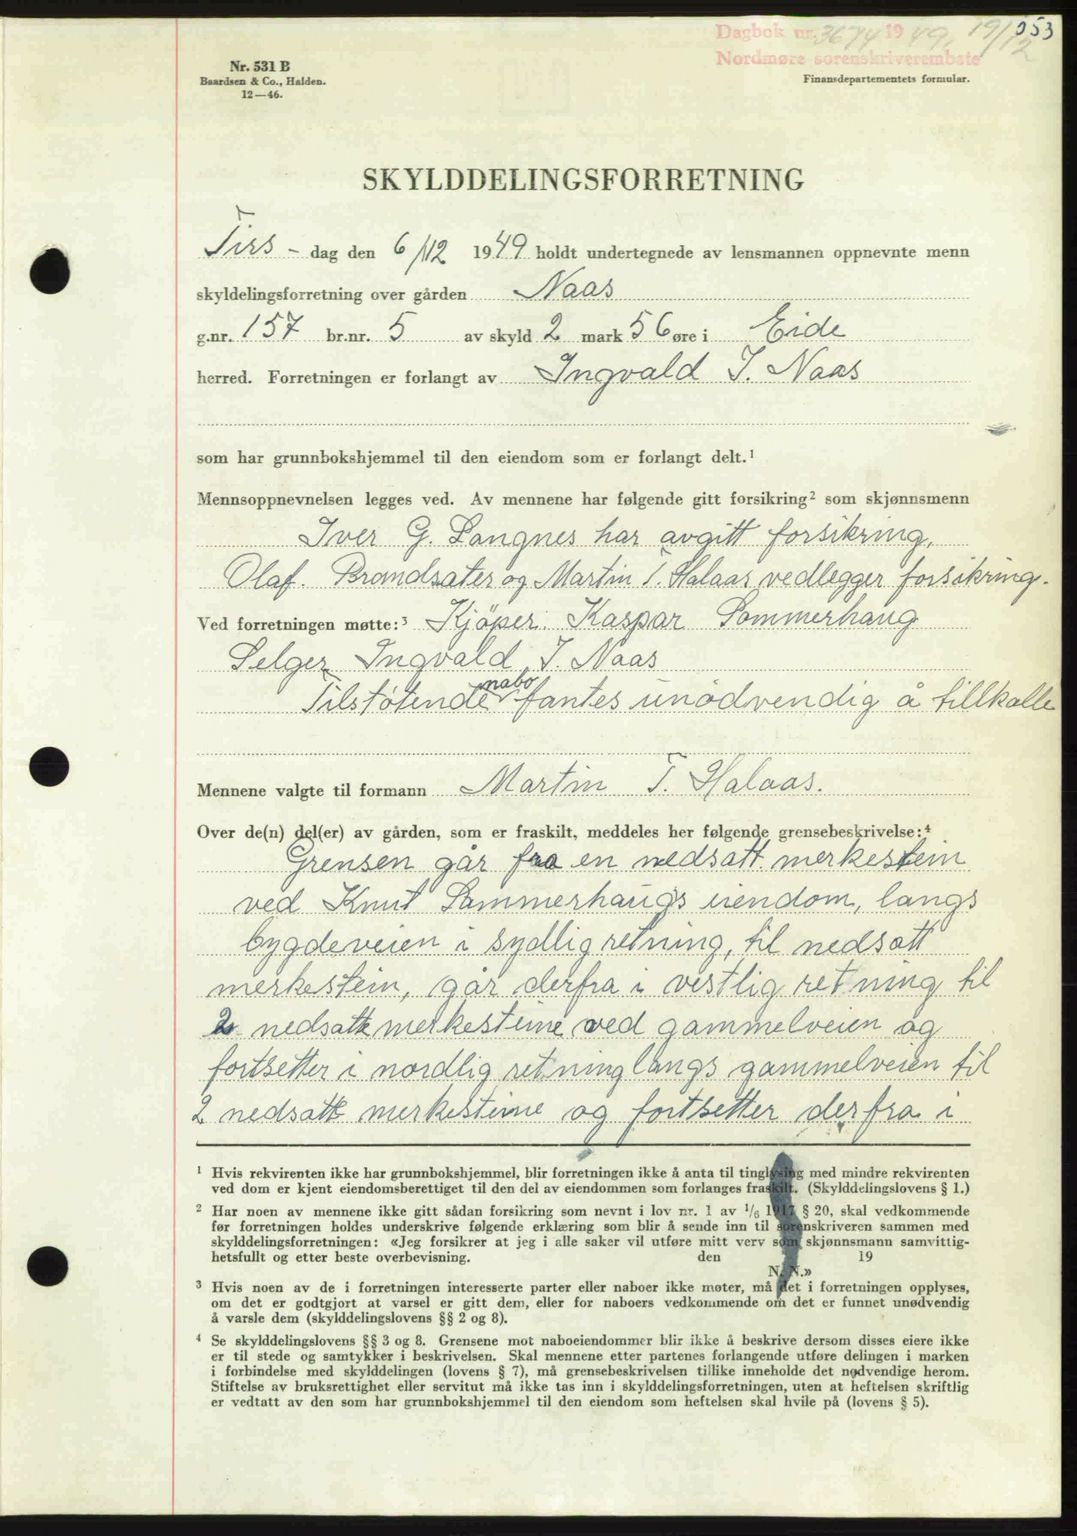 053
Dagbok nr. 3674 1949, 19/12
Nordmøre sorenskriverembete
Nr. 531 B
Baardsen & Co., Halden.
12—46.
Finansdepartementets formular.
SKYLDDELINGSFORRETNING
Tirs - dag den 6/12 1949 holdt undertegnede av lensmannen oppnevnte menn
skyldelingsforretning over gården Naas
g.nr. 157 br.nr. 5 av skyld 2 mark 56 øre i Eide
herred. Forretningen er forlangt av Ingvald J. Naas
som har grunnbokshjemmel til den eiendom som er forlangt delt.¹
Mennsoppnevnelsen legges ved. Av mennene har følgende gitt forsikring² som skjønnsmenn
Iver G. Langnes har avgitt forsikring,
Olaf. Brandsæter og Martin T. Halaas vedlegger forsikring.
Ved forretningen møtte:³ Kjöper: Kaspar Sommerhaug
Selger Ingvald J. Naas
Tilstøtende nabo fantes unödvendig å tillkalle
Mennene valgte til formann Martin T. Halaas.
Over de(n) del(er) av gården, som er fraskilt, meddeles her følgende grensebeskrivelse:⁴
Grensen går fra en nedsatt merkestein
ved Knut Sammerhaugs eiendom, langs
bygdeveien i sydlig retning, til nedsatt
merkestein, går derfra i vestlig retning til
2 nedsatte merkesteine ved gammelveien og
fortsetter i nordlig retning langs gammelveien til
2 nedsatte merkesteine og fortsetter derfra i
¹ Hvis rekvirenten ikke har grunnbokshjemmel, blir forretningen ikke å anta til tinglysing med mindre rekvirenten
ved dom er kjent eiendomsberettiget til den del av eiendommen som forlanges fraskilt. (Skylddelingslovens § 1.)
² Har noen av mennene ikke gitt sådan forsikring som nevnt i lov nr. 1 av 1/6 1917 § 20, skal vedkommende
før forretningen holdes underskrive følgende erklæring som blir å sende inn til sorenskriveren sammen med
skylddelingsforretningen: «Jeg forsikrer at jeg i alle saker vil utføre mitt verv som skjønnsmann samvittig-
hetsfullt og etter beste overbevisning. den 19
N. N.»
³ Hvis noen av de i forretningen interesserte parter eller naboer ikke møter, må det i forretningen opplyses,
om det er godtgjort at varsel er gitt dem, eller for naboers vedkommende om det er funnet unødvendig
å varsle dem (skylddelingslovens §§ 2 og 8).
⁴ Se skylddelingslovens §§ 3 og 8. Grensene mot naboeiendommer blir ikke å beskrive dersom disses eiere ikke
er til stede og samtykker i beskrivelsen. Skal mennene etter partenes forlangende utføre delingen i marken
i forbindelse med skylddelingen (lovens § 7), må grensebeskrivelsen tillike inneholde det nødvendige herom.
Stiftelse av bruksrettighet eller servitut må ikke tas inn i skylddelingsforretningen, uten at heftelsen skriftlig
er vedtatt av den som har grunnbokshjemmel til den eiendom som heftelsen skal hvile på (lovens § 5).